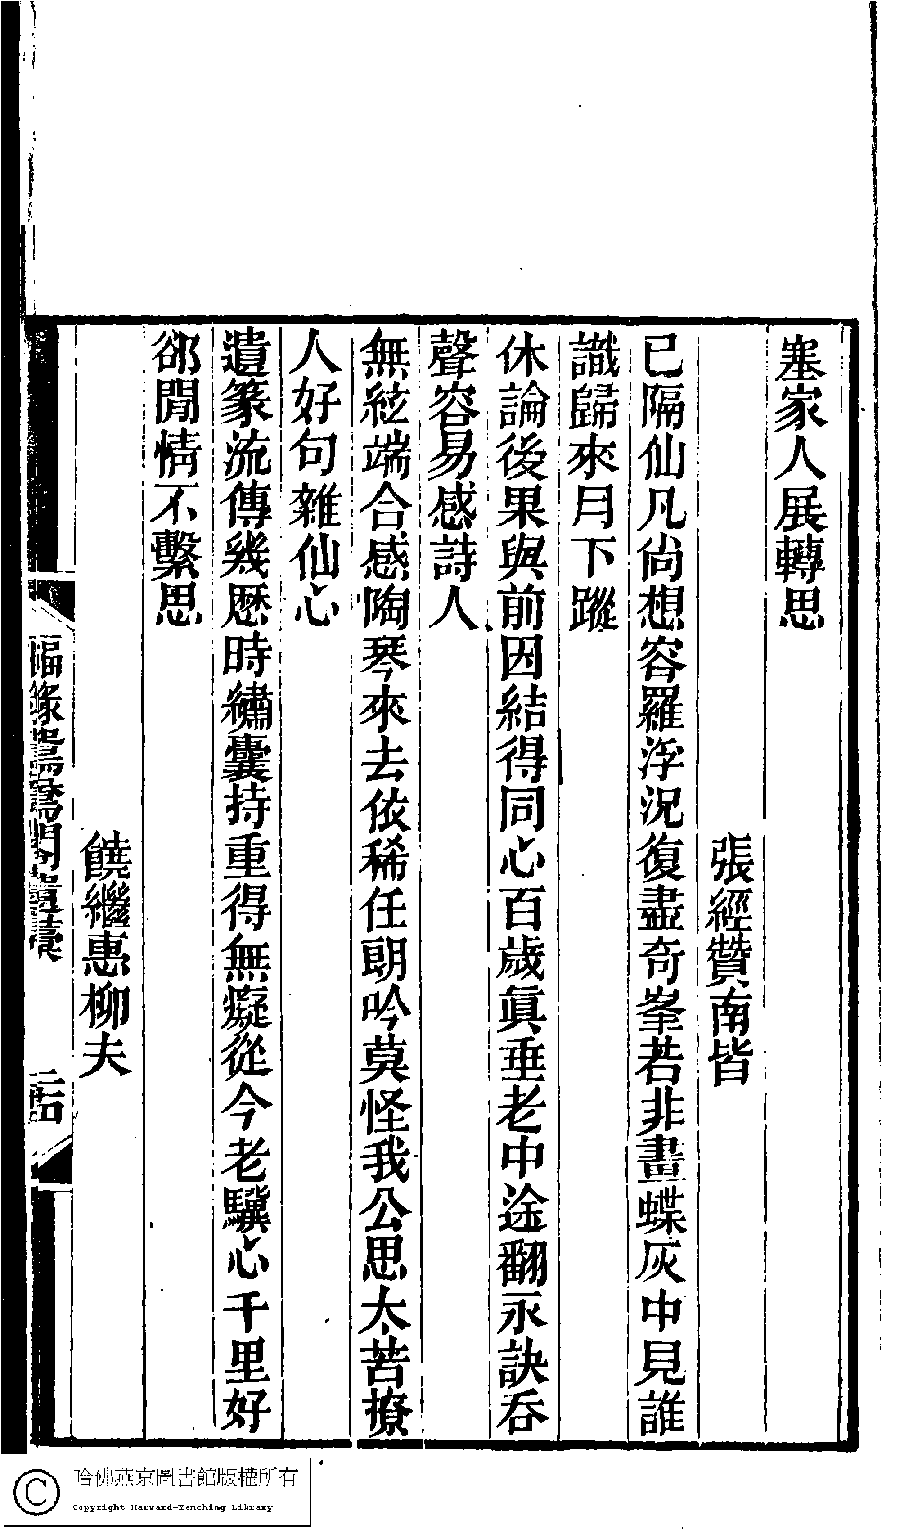 塞家人展轉思
張經贊南皆
已隔仙凡尙想容羅浮況復盡奇峯若非畫蝶灰中見誰
識歸來月下蹤
休論後果與前因結得同心百歲眞垂老中途翻永訣吞
聲容易感詩人
無絃端合感陶琴來去依稀任朗吟莫怪我公思太苦撩
人好句雜仙心
遺篆流傳幾歷時繡囊持重得無癡從今老驥心千里好
郤閒情不繫思
饒繼惠柳夫
福緣鴛鴦閣遺稾
哈佛燕京圖書館版權所有
Copyright Harvard-Yenching Library